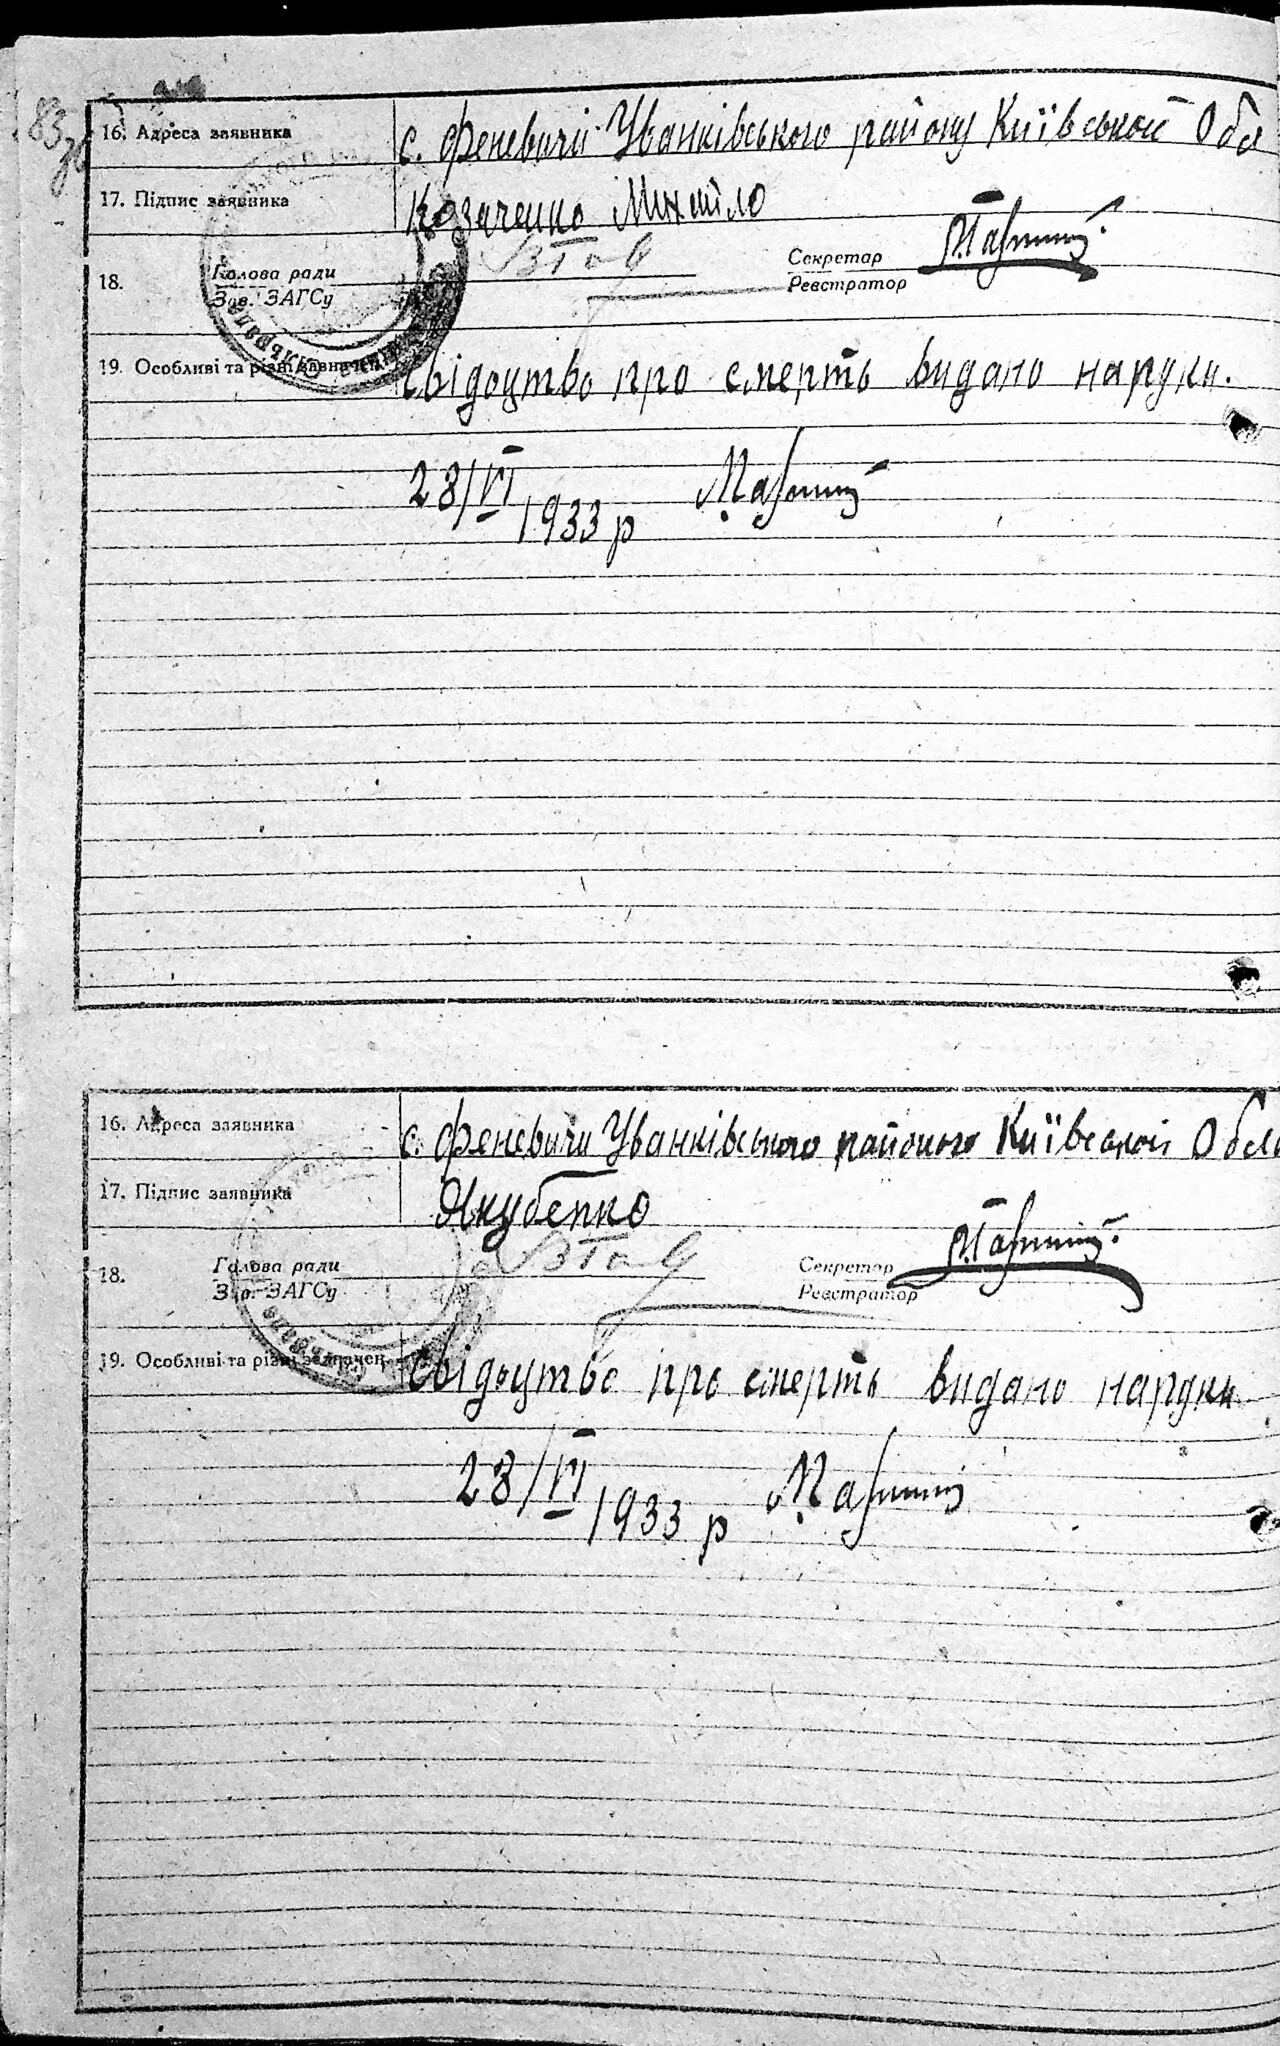 83
16. Адреса заявника с. Феневичи Уванківського району Київськой Обл
17. Підпис заявника Козаченко Михайло
18. Голова ради Секретар
Зав. ЗАГСу Реєстратор
19. Особливі та різні зазначен. Свідоцтво про смерть видано наруки.
28/VI 1933 р
16. Адреса заявника с. Феневичи Уванківського районого Київськой Обла
17. Підпис заявника Якубенко
18. Голова ради Секретар
Зав. ЗАГСу Реєстратор
19. Особливі та різні зазначен. Свідоцтво про смерть видано наруки
28/VI 1933 р